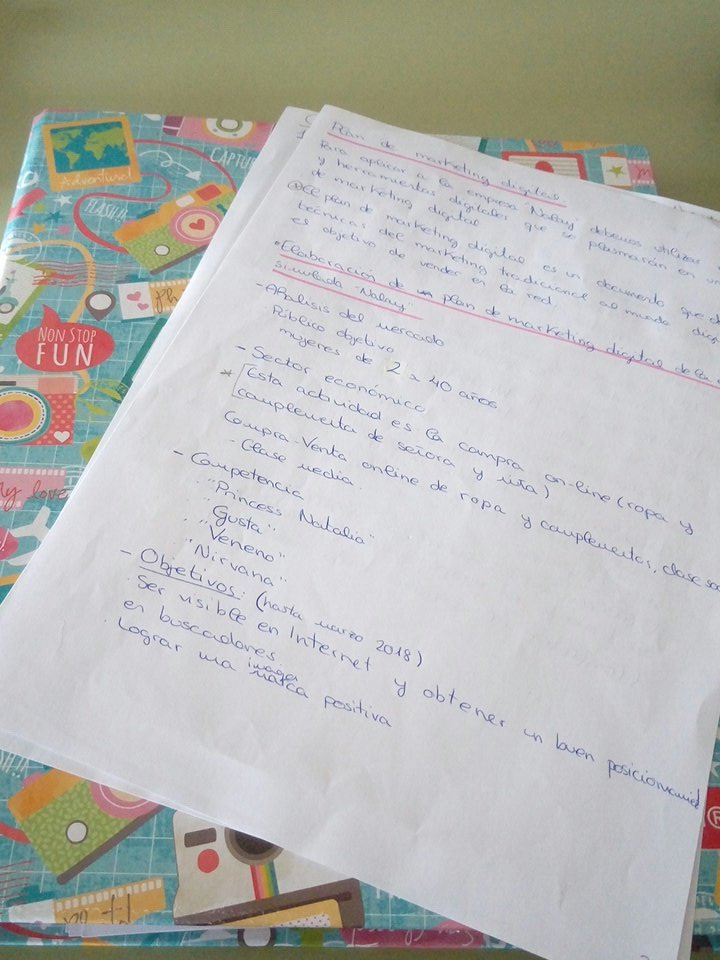 Plan de marketing digital
Para aplicar a la empresa "Nalay" debemos utilizar
y herramientas digitales que se plasmarán en un
de marketing digital
El plan de marketing digital es un documento que
técnicas del marketing tradicional al mundo
es objetivo de vender en la red.
Elaboración de un plan de marketing digital de la
simulada "Nalay"
- Análisis del mercado
Público objetivo
mujeres de 2 a 40 años
- Sector económico
* Esta actividad es la compra on-line (ropa y
complementos de señora y niña)
Compra-Venta online de ropa y complementos, clase
- Clase media
- Competencia
"Princess Natalia"
"Gusta"
"Veneno"
"Nirvana"
- Objetivos: (hasta marzo 2018)
Ser visible en Internet y obtener un buen
en buscadores.
Lograr una imagen positiva
Adventure!
CAPTU
FLASH
NON STOP
FUN
My love